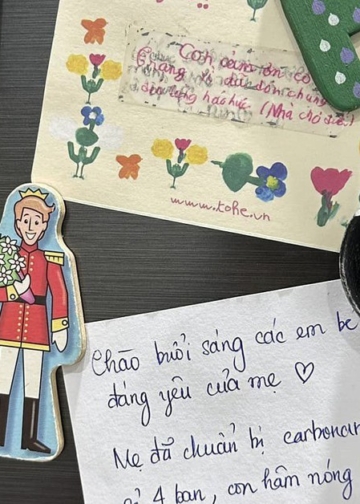 Con cảm ơn cô
Giang vì đã đón chúng
con bằng háo hức (Nhà chó sẻ!)
www.tohe.vn
Chào buổi sáng các em bé
đáng yêu của mẹ ♡
Mẹ đã chuẩn bị carbonar
4 bạn, con hâm nóng